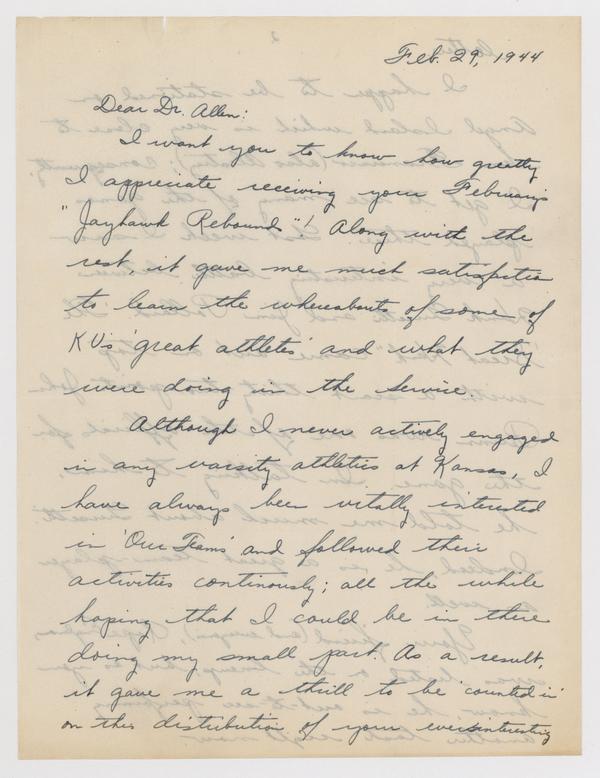 Feb. 29, 1944
Dear Dr. Allen:
I want you to know how greatly
I appreciate receiving your February's
"Jayhawk Rebounds"! Along with the
rest, it gave me much satisfaction
to learn the whereabouts of some of
KU's 'great athletes' and what they
were doing in the Service.
Although I never actively engaged
in any varsity athletics at Kansas, I
have always been vitally interested
in 'Our Teams' and followed their
activities continously; all the while
hoping that I could be in there
doing my small part. As a result,
it gave me a thrill to be 'counted in'
on this distribution of your ever interesting